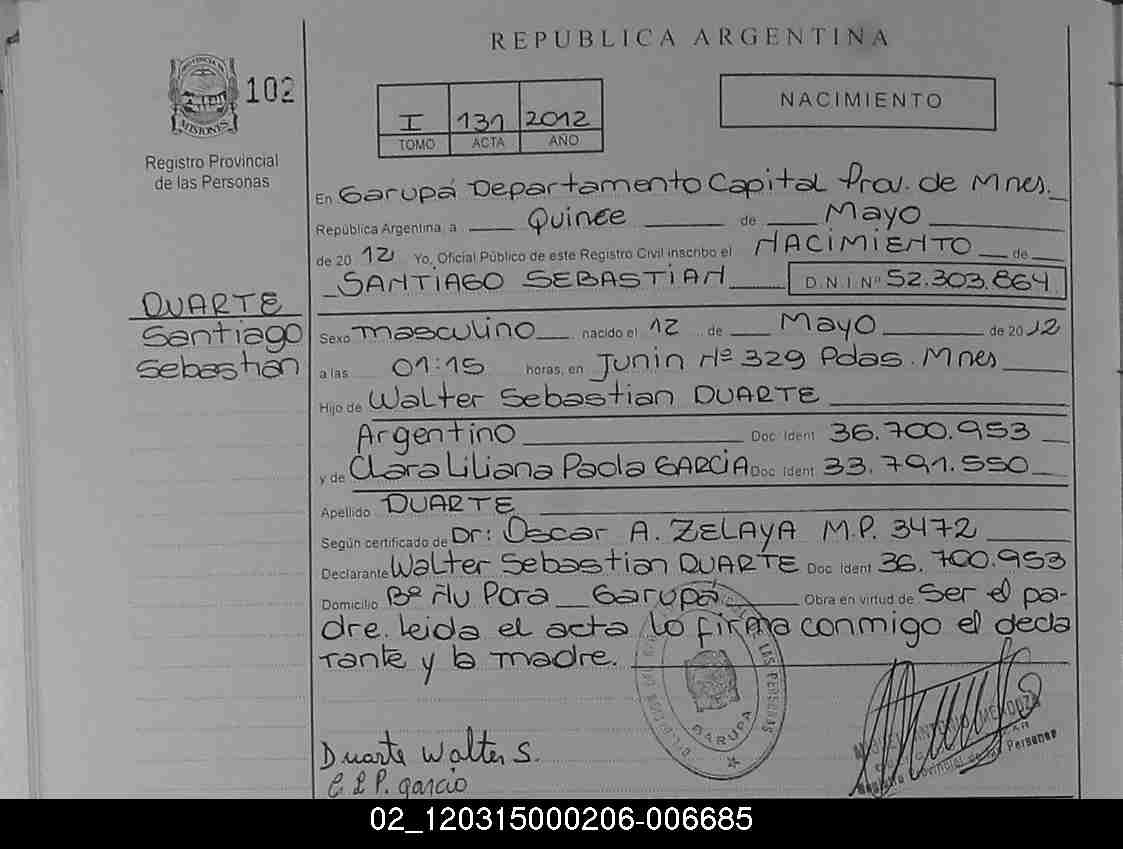 REPUBLICA ARGENTINA
PROVINCIA DE
MISIONES
102
Registro Provincial
de las Personas
I 131 2012
TOMO ACTA AÑO
NACIMIENTO
En Garupá Departamento Capital Prov. de Mnes.
República Argentina, a Quince de Mayo
de 2012 Yo, Oficial Público de este Registro Civil inscribo el NACIMIENTO de
SANTIAGO SEBASTIAN D.N.I Nº 52.303.864
DUARTE
Santiago
Sebastian
Sexo masculino nacido el 12 de Mayo de 2012
a las 01:15 horas, en Junin Nº 329 Pdas. Mnes
Hijo de Walter Sebastian DUARTE
Argentino Doc Ident 36.700.953
y de Clara Liliana Paola GARCIA Doc Ident 33.791.550
Apellido DUARTE
Según certificado de Dr: Oscar A. ZELAYA M.P. 3472
Declarante Walter Sebastian DUARTE Doc Ident 36.700.953
Domicilio Bº Ñu Pora Garupá Obra en virtud de Ser el pa-
dre. leida el acta lo firma conmigo el decla
rante y la madre.
LAS PERSONAS
GARUPA
Duarte Walter S.
C L P. garcia
ANTONIO MENDOZA
Registro Provincial de las Personas
02_120315000206-006685